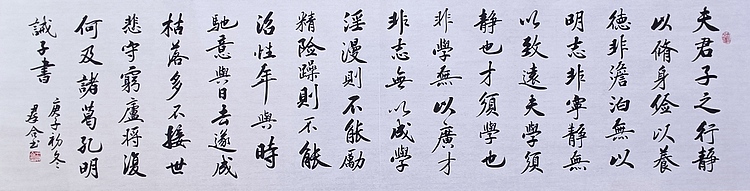 夫君子之行静
以脩身俭以養
德非澹泊無以
明志非寧静無
以致遠夫學須
静也才須學也
非學無以廣才
非志無以成學
淫漫則不能勵
精险躁則不能
治性年與時
馳意與日去遂成
枯落多不接世
悲守窮廬將復
何及諸葛孔明
誡子書
庚子初冬